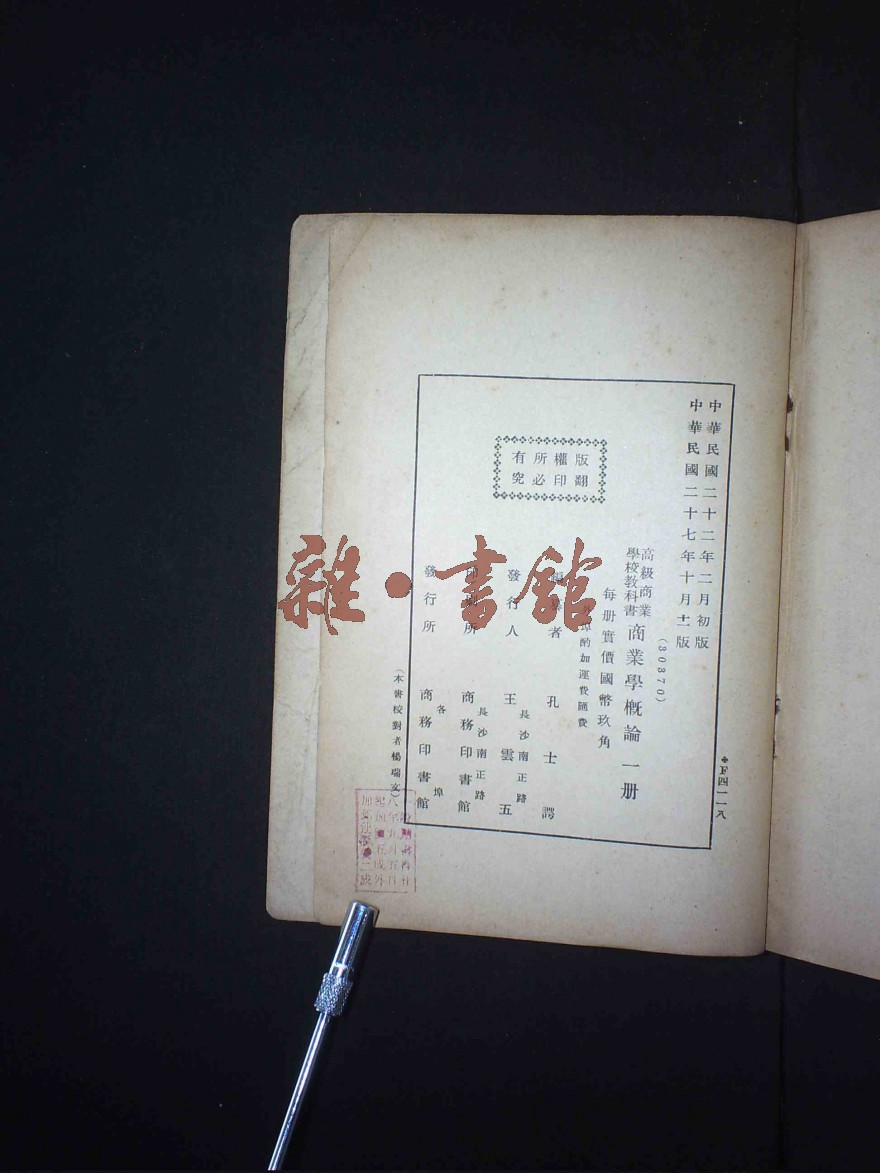 中華民國二十二年二月初版
中華民國二十七年十月十一版
✤F四一一八
(30370)
高級商業
學校教科書 商業學概論 一册
每册實價國幣玖角
酌加運費匯費
版權所有
翻印必究
者 孔士諤
長沙南正路
發行人 王雲五
長沙南正路
所 商務印書館
各埠
發行所 商務印書館
(本書校對者楊瑞文)
雜·書館